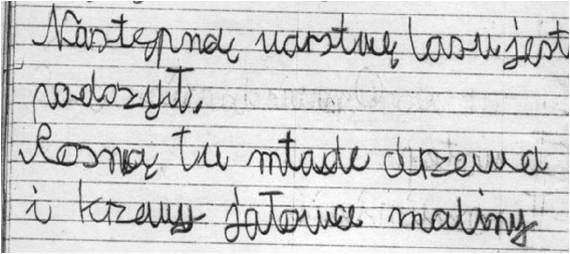 Następną warstwą lasu jest
podszyt.
Rosną tu młade drzewa
i krzewy jałowca maliny